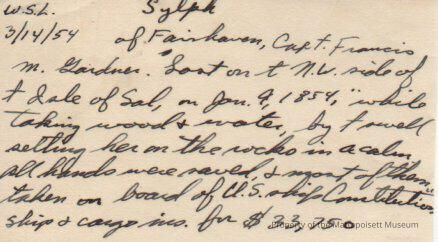 W.S.L. Sylph
3/14/54 of Fairhaven, Capt. Francis
M. Gardner. "Lost on t N.W. side of
t Isle of Sal, on Jan. 9, 1854," "while
taking wood & water, by t swell
setting her on the rocks in a calm,
all hands were saved, & most of them
taken on board of U.S. ship Constitution
ship & cargo ins. for $33,750
Property of the Mattapoisett Museum